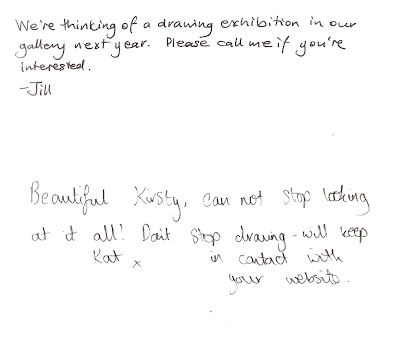 We're thinking of a drawing exhibition in our
gallery next year. Please call me if you're
interested.
-Jill
Beautiful Kirsty, can not stop looking
at it all! Don't stop drawing - will keep
Kat x in contact with
your website.